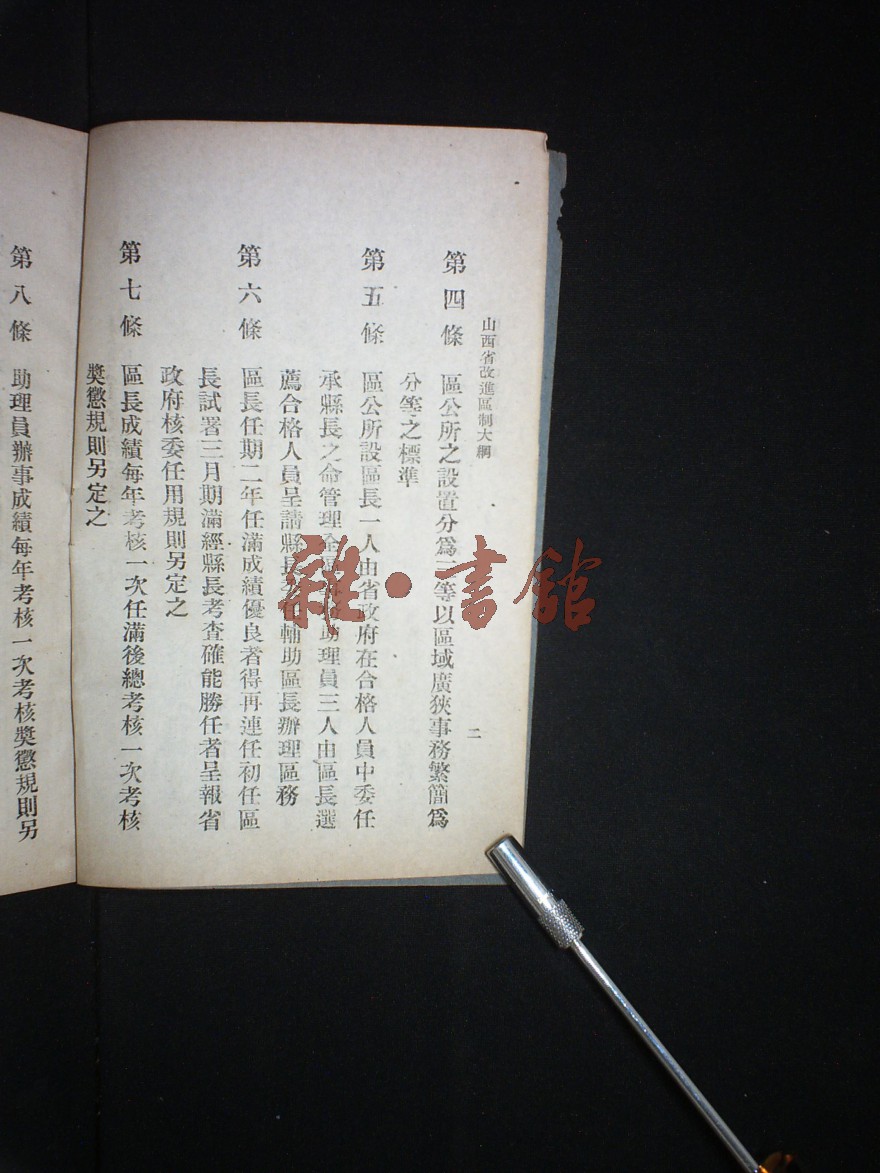 山西省改進區制大綱
二
第四條 區公所之設置分爲三等以區域廣狹事務繁簡爲
分等之標準
第五條 區公所設區長一人由省政府在合格人員中委任
承縣長之命管理全區 助理員三人由區長選
薦合格人員呈請縣長委任輔助區長辦理區務
第六條 區長任期二年任滿成績優良者得再連任初任區
長試署三月期滿經縣長考查確能勝任者呈報省
政府核委任用規則另定之
第七條 區長成績每年考核一次任滿後總考核一次考核
獎懲規則另定之
第八條 助理員辦事成績每年考核一次考核獎懲規則另
雜·書館